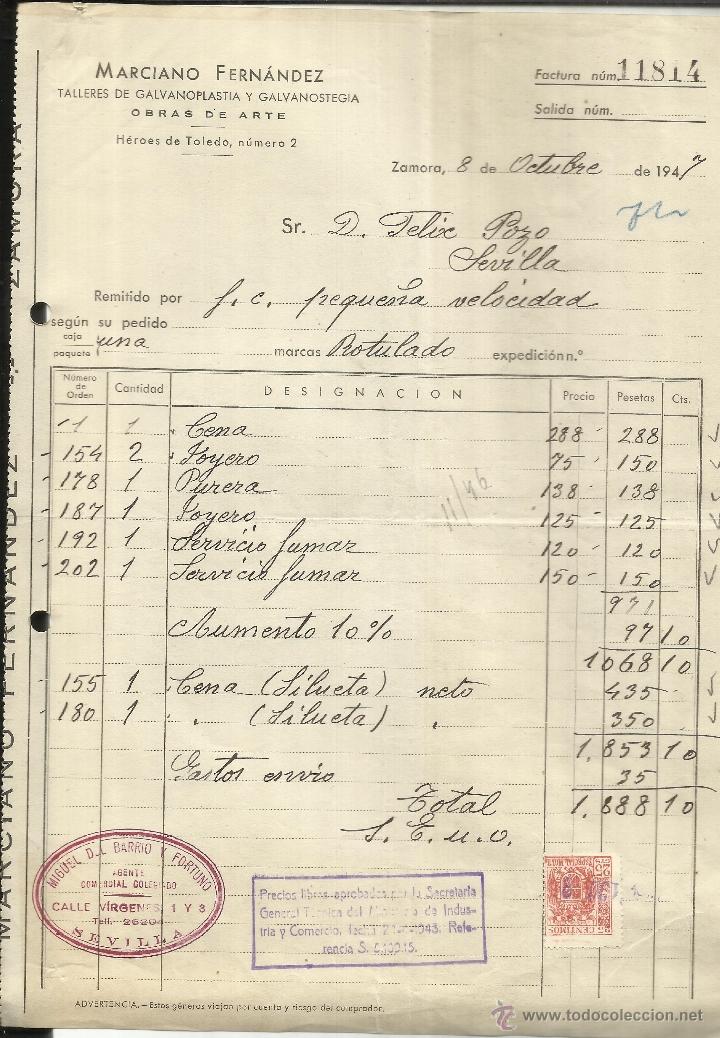 MARCIANO FERNÁNDEZ
TALLERES DE GALVANOPLASTIA Y GALVANOSTEGIA
OBRAS DE ARTE
Héroes de Toledo, número 2
Factura núm. 11814
Salida núm.
Zamora, 8 de Octubre de 1947
Sr. D. Felix Pozo
Sevilla
Remitido por f. c. pequeña velocidad
según su pedido
caja paquete una marcas Rotulado expedición n.º
Número de Orden Cantidad DESIGNACION Precio Pesetas Cts.
1 1 Cena 288 288
154 2 Joyero 75 150
178 1 Purera 138 138
187 1 Joyero 125 125
192 1 Servicio fumar 120 120
202 1 Servicio fumar 150 150
971
11/46
Aumento 10% 97 10
1068 10
155 1 Cena (Silueta) neto 435
180 1 " (Silueta) " 350
1,853 10
Gastos envio 35
Total 1,888 10
S. E. u. O.
MIGUEL DEL BARRIO Y FORTUNO
AGENTE
COMERCIAL COLEGIADO
CALLE VÍRGENES, 1 Y 3
Telf. 26204
SEVILLA
Precios libres aprobados por la Secretaria
General Técnica del Ministerio de Indus-
tria y Comercio, fecha
Refe-
rencia S.
ESPECIAL MOVIL
25 CENTIMOS 25
ADVERTENCIA.—Estos géneros viajan por cuenta y riesgo del comprador.
MARCIANO FERNANDEZ
ZAMORA
www.todocoleccion.net